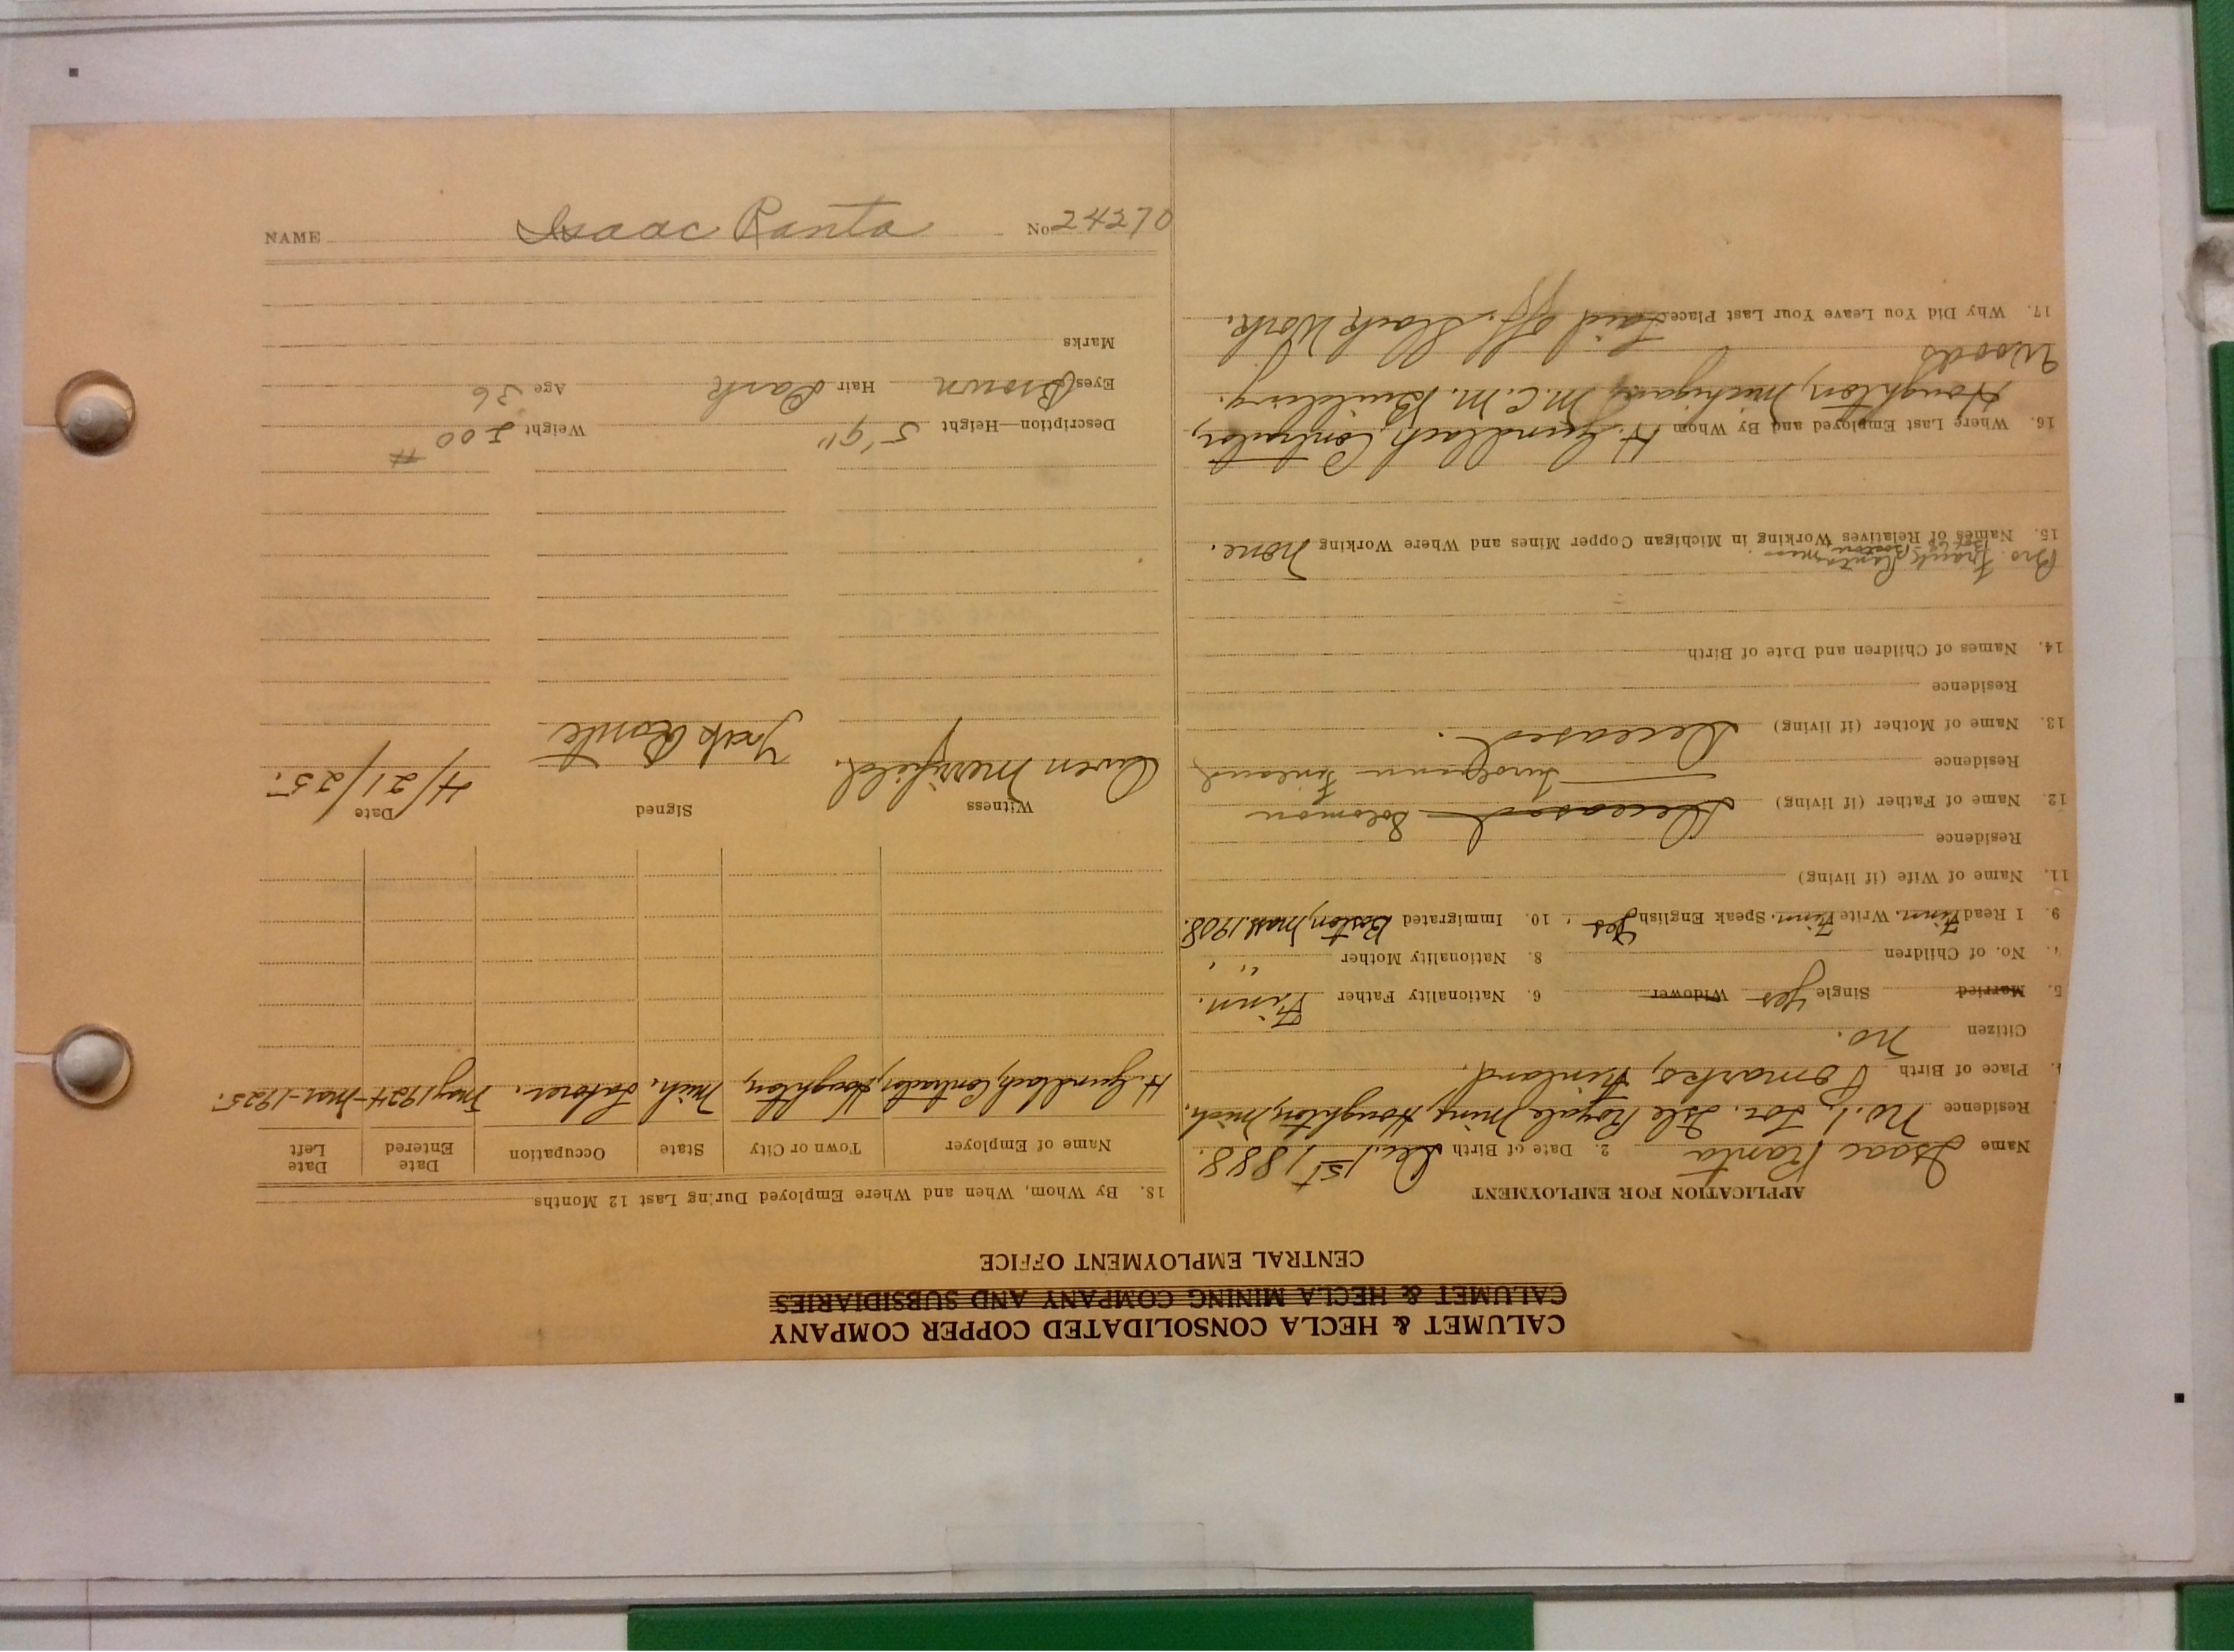 CALUMET & HECLA CONSOLIDATED COPPER COMPANY
CALUMET & HECLA MINING COMPANY AND SUBSIDIARIES
CENTRAL EMPLOYMENT OFFICE
APPLICATION FOR EMPLOYMENT
Name Isaac Ranta 2. Date of Birth Dec. 1st 1888.
Residence No. 1, Loc. Isle Royale Mine, Houghton, Mich.
Place of Birth Pomarks, Finland.
Citizen No.
5. Married Single Yes Widower 6. Nationality Father Finn.
7. No. of Children 8. Nationality Mother " "
9. I Read Finn. Write Finn. Speak English Yes. 10. Immigrated Boston, Mass. 1908.
11. Name of Wife (if living)
Residence
12. Name of Father (if living) Deceased Solomon
Residence Finland
13. Name of Mother (if living) Deceased.
Residence
14. Names of Children and Date of Birth
15. Names of Relatives Working in Michigan Copper Mines and Where Working None.
Bro. Frank Ranta
16. Where Last Employed and By Whom H. Gundlach, Contractor,
Houghton, Michigan, M.C.M. Building.
Woods
17. Why Did You Leave Your Last Place? Laid off. Slack Work.
18. By Whom, When and Where Employed During Last 12 Months
Name of Employer Town or City State Occupation Date Entered Date Left
H. Gundlach, Contractor, Houghton, Mich. Laborer. May 1924 - Mar - 1925.
Witness Signed Date
Owen Merrifield. 4/21/25.
Description—Height 5' 9" Weight 200 #
Eyes Brown Hair Dark Age 36
Marks
NAME Isaac Ranta No. 24270